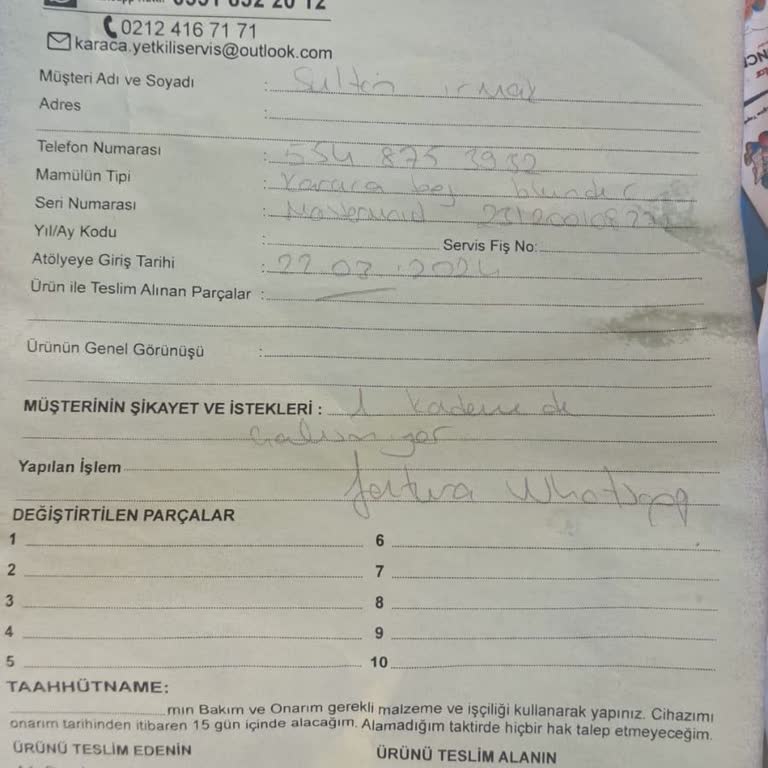 0212 416 71 71
karaca.yetkiliservis@outlook.com
Müşteri Adı ve Soyadı : Sultan ırmak
Adres :
Telefon Numarası : 554 875 3932
Mamülün Tipi : Karaca bej blender
Seri Numarası :
Yıl/Ay Kodu : Servis Fiş No:
Atölyeye Giriş Tarihi : 22.07.2024
Ürün ile Teslim Alınan Parçalar :
Ürünün Genel Görünüşü :
MÜŞTERİNİN ŞİKAYET VE İSTEKLERİ : 1 kademe de
çalışmıyor
Yapılan İşlem
fatura Whatsapp
DEĞİŞTİRTİLEN PARÇALAR
1 6
2 7
3 8
4 9
5 10
TAAHHÜTNAME:
mın Bakım ve Onarım gerekli malzeme ve işçiliği kullanarak yapınız. Cihazımı
onarım tarihinden itibaren 15 gün içinde alacağım. Alamadığım taktirde hiçbir hak talep etmeyeceğim.
ÜRÜNÜ TESLİM EDENİN ÜRÜNÜ TESLİM ALANIN